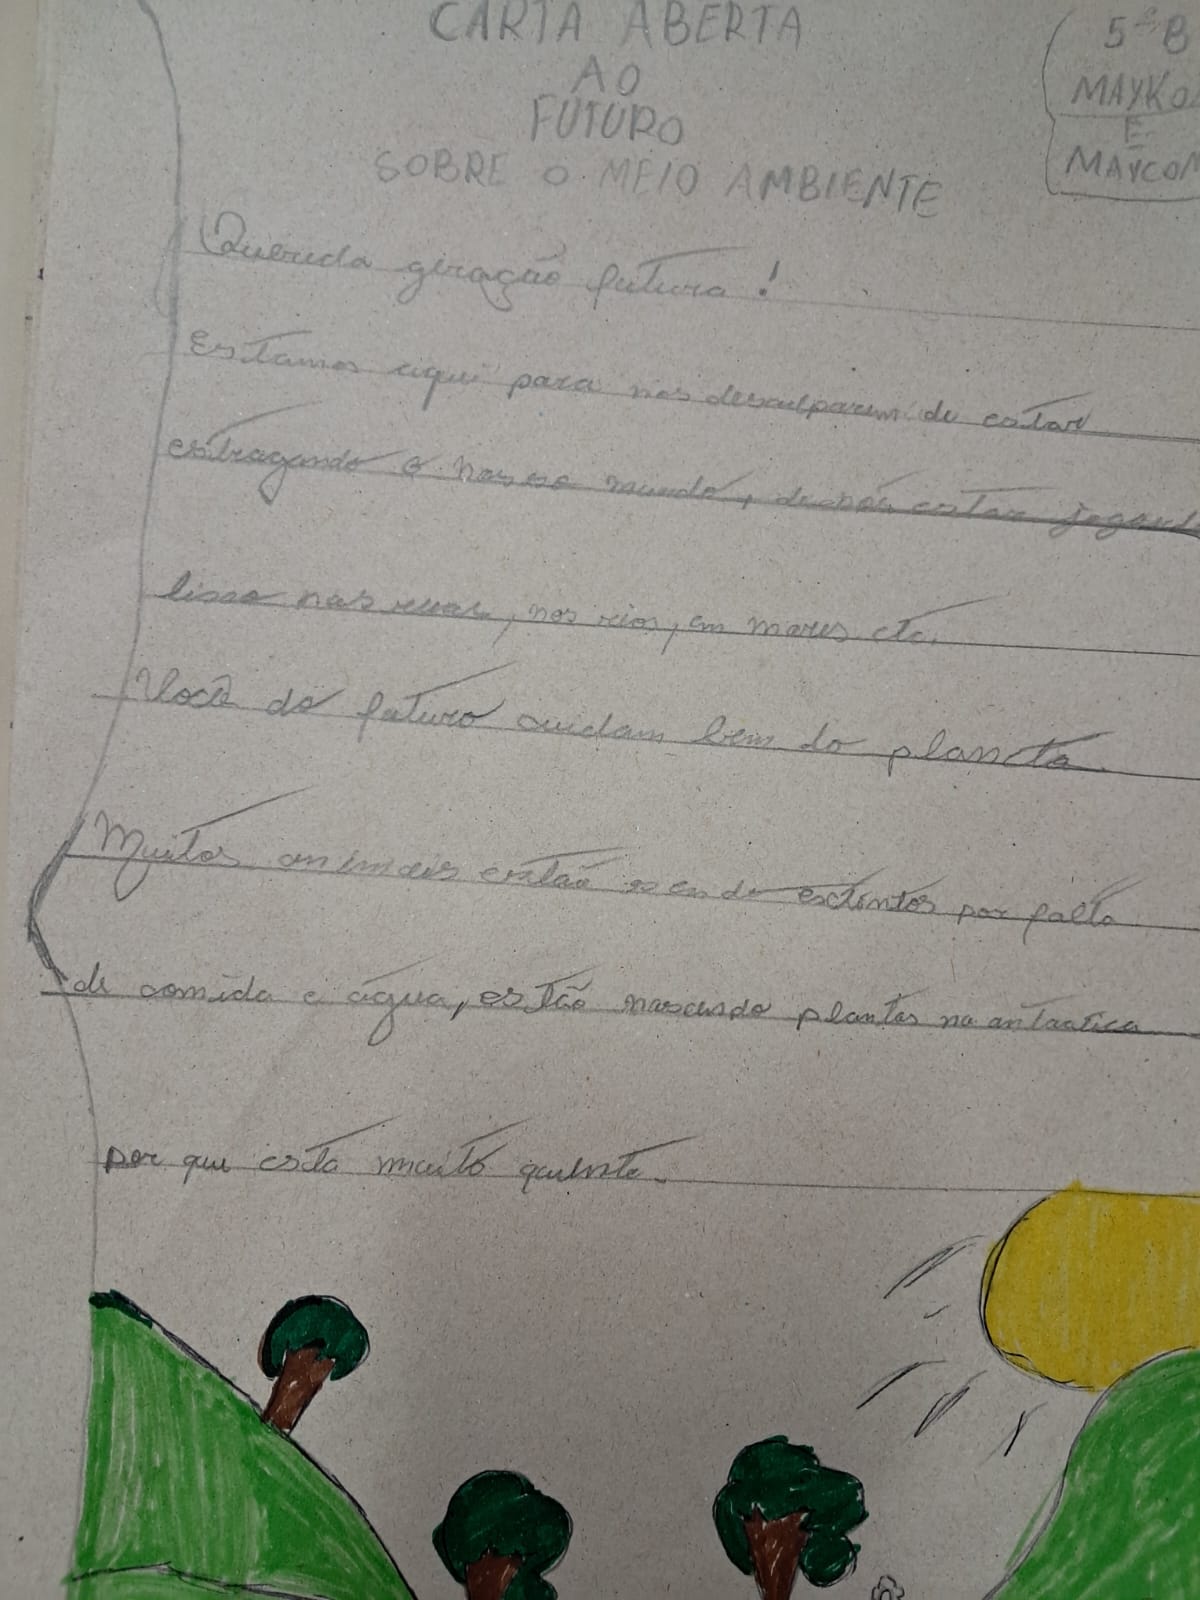 CARTA ABERTA
AO
FUTURO
SOBRE O MEIO AMBIENTE
5º B
MAYKO
E
MAYCON
Querida geração futura!
Estamos aqui para nos desculparem de estar
estragando o nosso mundo, de nós estar jogand
lixo nas ruas, nos rios, em mares etc.
Você do futuro cuidam bem do planeta.
Muitos animais estão sendo esctintos por falta
de comida e água, estão nascendo plantas na antartica
por que esta muito quente.